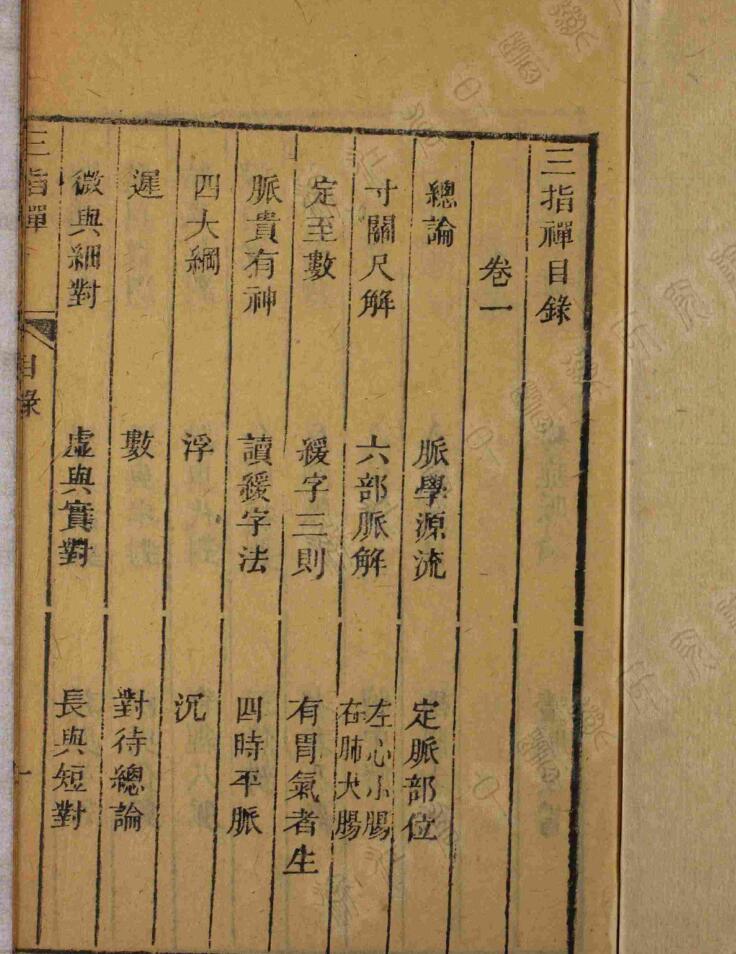 三指禪目錄
卷一
總論 脈學源流 定脈部位
寸關尺解 六部脈解 左心小腸 右肺大腸
定至數 緩字三則 有胃氣者生
脈貴有神 讀緩字法 四時平脈
四大綱 浮 沉
遲 數 對待總論
微與細對 虛與實對 長與短對
三指禪 目錄 一